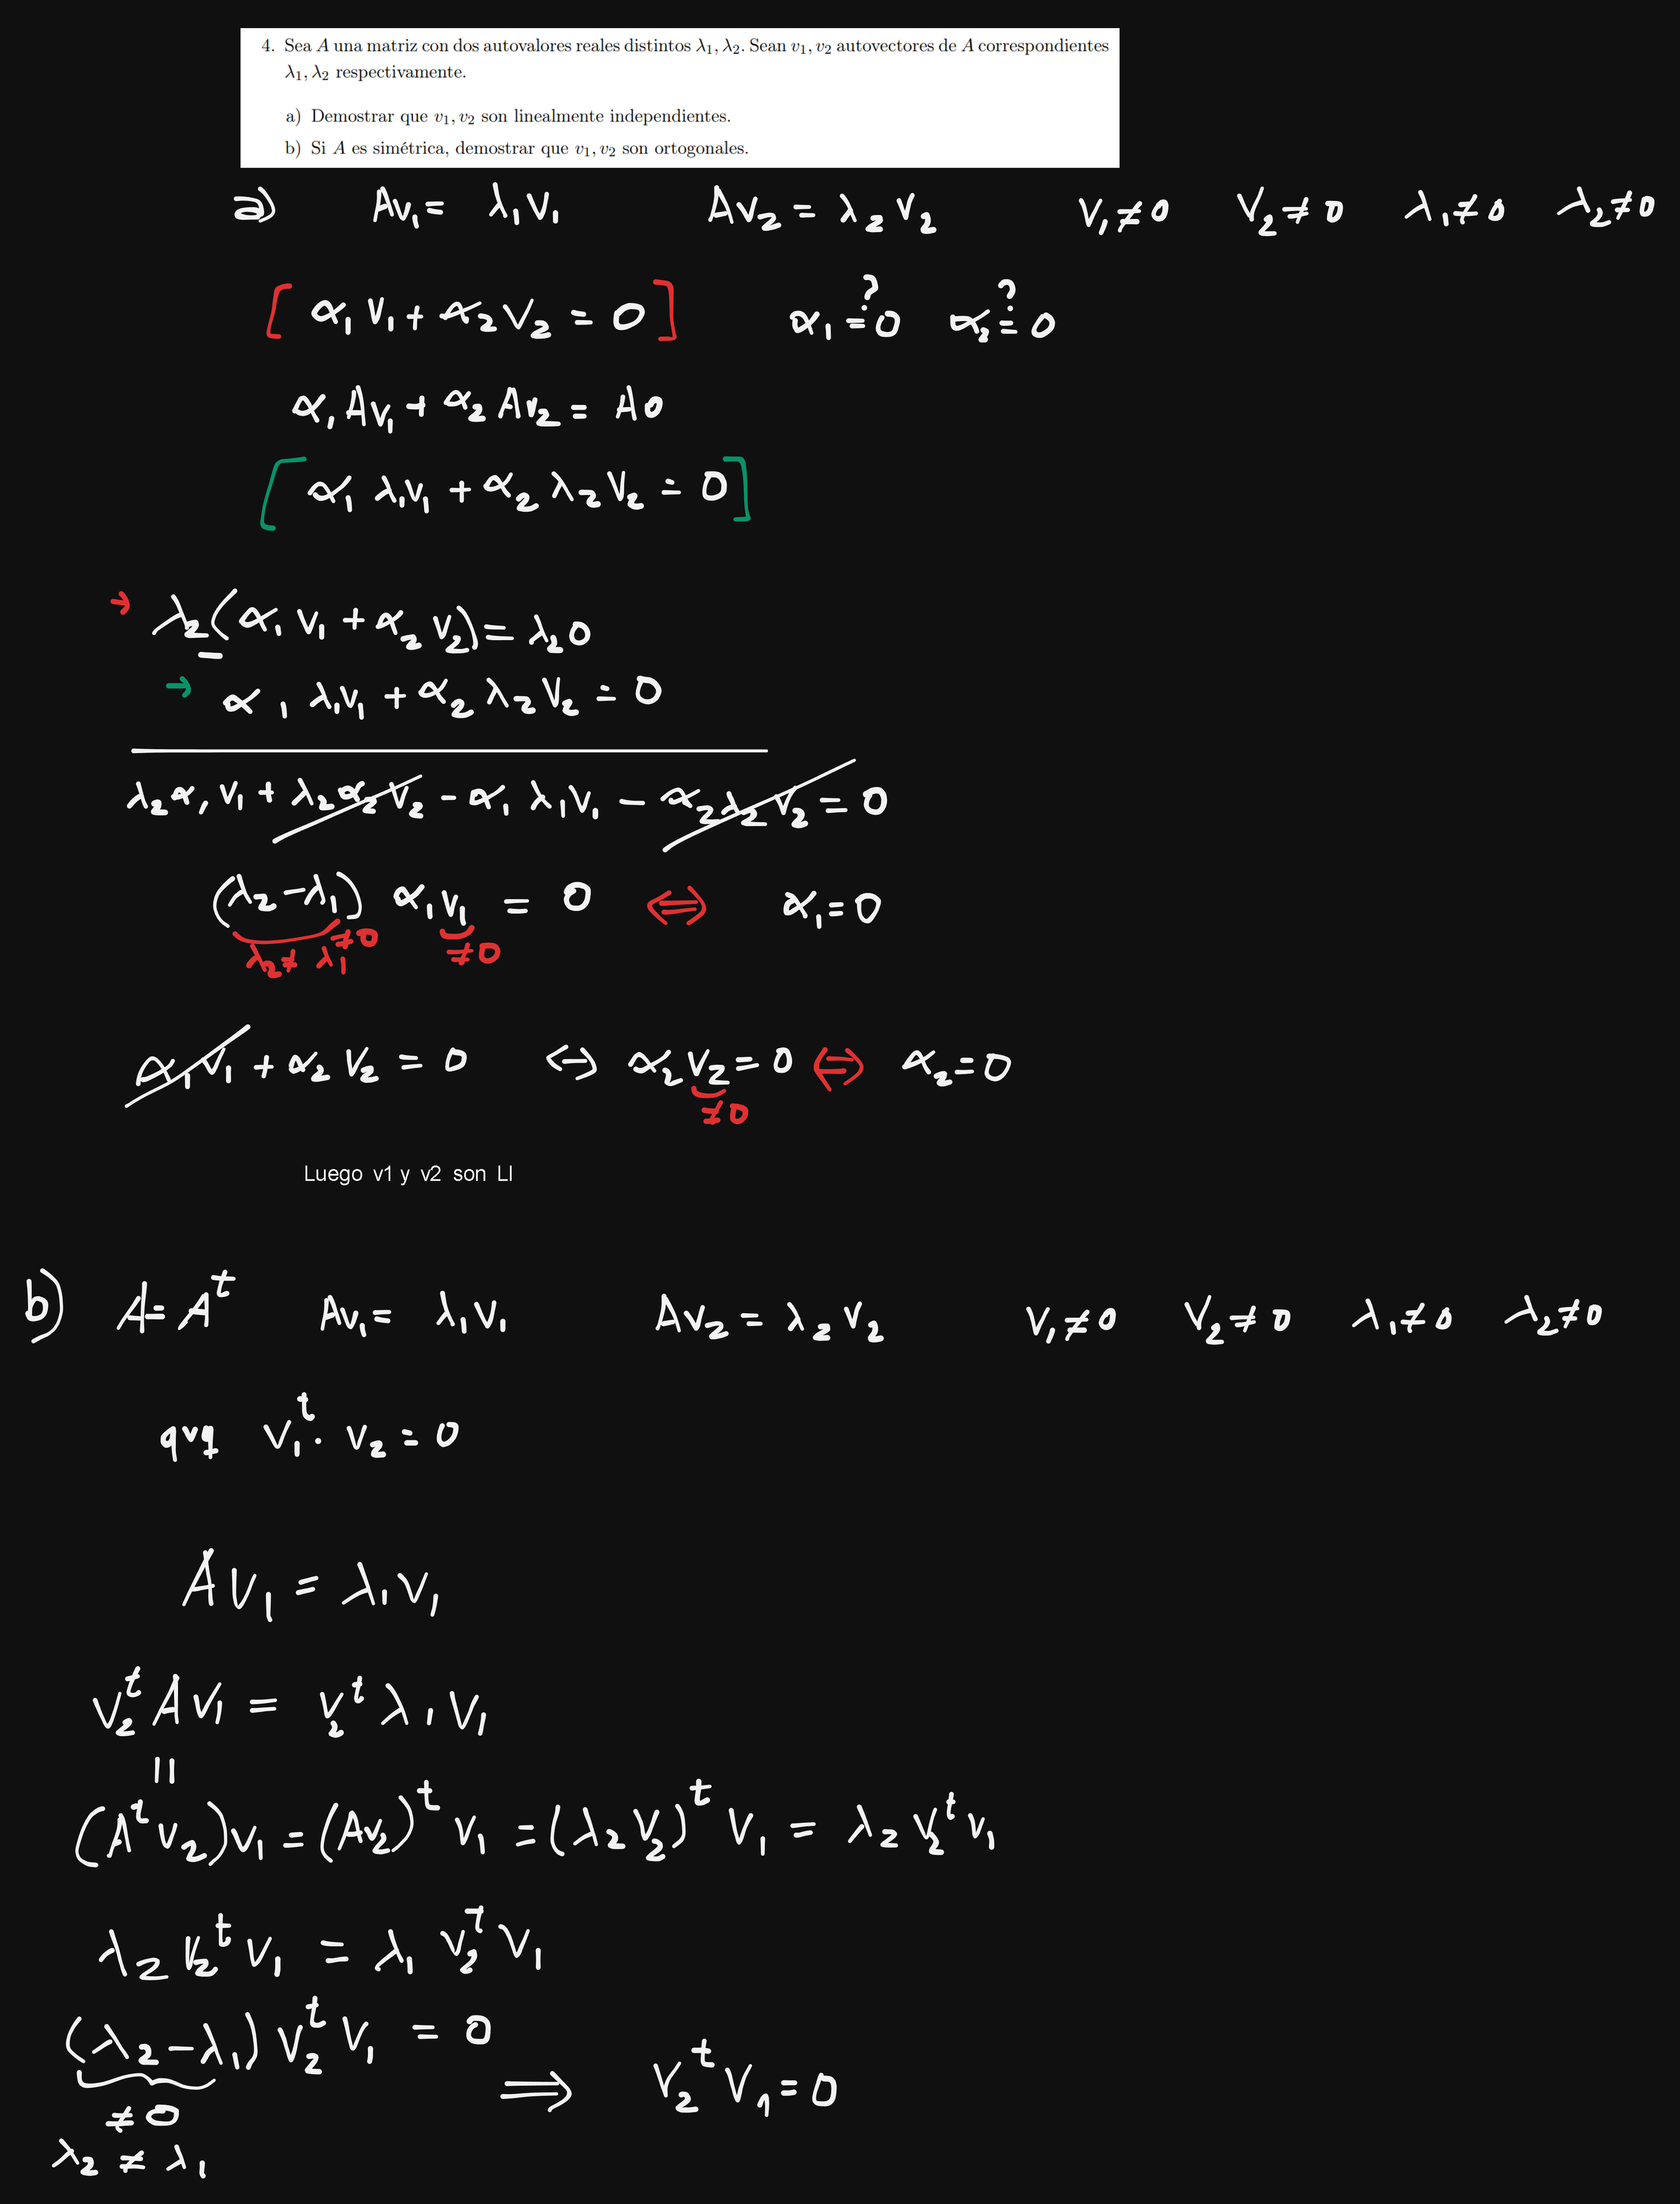 4. Sea A una matriz con dos autovalores reales distintos λ₁, λ₂. Sean v₁, v₂ autovectores de A correspondientes
λ₁, λ₂ respectivamente.
a) Demostrar que v₁, v₂ son linealmente independientes.
b) Si A es simétrica, demostrar que v₁, v₂ son ortogonales.
a) Av₁ = λ₁v₁ Av₂ = λ₂v₂ v₁≠0 v₂≠0 λ₁≠0 λ₂≠0
[α₁v₁ + α₂v₂ = 0] α₁ =? 0 α₂ =? 0
α₁Av₁ + α₂Av₂ = A0
[α₁λ₁v₁ + α₂λ₂v₂ = 0]
→ λ₂(α₁v₁ + α₂v₂) = λ₂0
−
→ α₁λ₁v₁ + α₂λ₂v₂ = 0
λ₂α₁v₁ + λ₂α₂v₂ − α₁λ₁v₁ − α₂λ₂v₂ = 0
(λ₂−λ₁) α₁v₁ = 0 ⇔ α₁=0
≠0 ≠0
λ₂≠λ₁
α₁v₁ + α₂v₂ = 0 ⇔ α₂v₂=0 ⇔ α₂=0
≠0
Luego v1 y v2 son LI
b) A=Aᵗ Av₁ = λ₁v₁ Av₂ = λ₂v₂ v₁≠0 v₂≠0 λ₁≠0 λ₂≠0
qvq v₁ᵗ·v₂=0
Av₁ = λ₁v₁
v₂ᵗAv₁ = v₂ᵗλ₁v₁
||
(Aᵗv₂)v₁ = (Av₂)ᵗv₁ = (λ₂v₂)ᵗv₁ = λ₂v₂ᵗv₁
λ₂v₂ᵗv₁ = λ₁v₂ᵗv₁
(λ₂−λ₁)v₂ᵗv₁ = 0
⟹ v₂ᵗv₁=0
≠0
λ₂≠λ₁